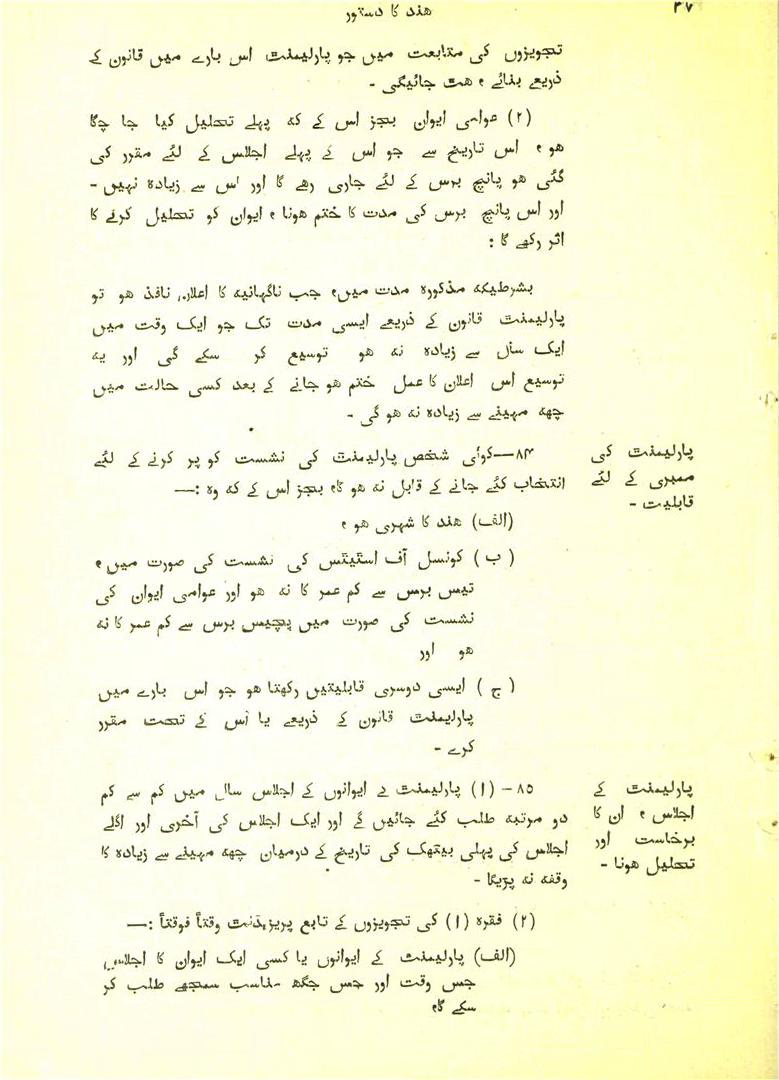 ۳۷
هند کا دستور
تجویزوں کی متابعت میں جو پارلیمنٹ اس بارے میں قانون کے
ذریعے بنائے ، ہٹ جائیگی -
(۲) عوامی ایوان بجز اس کے کہ پہلے تحلیل کیا جا چکا
هو ، اس تاریخ سے جو اس کے پہلے اجلاس کے لئے مقرر کی
گئی هو پانچ برس کے لئے جاری رهے گا اور اس سے زیادہ نہیں -
اور اس پانچ برس کی مدت کا ختم هونا ، ایوان کو تحلیل کرنے کا
اثر رکھے گا :
بشرطیکہ مذکورہ مدت میں، جب ناگہانیہ کا اعلان نافذ هو تو
پارلیمنٹ قانون کے ذریعے ایسی مدت تک جو ایک وقت میں
ایک سال سے زیادہ نہ هو توسیع کر سکے گی اور یہ
توسیع اس اعلان کا عمل ختم هو جانے کے بعد کسی حالت میں
چھہ مہینے سے زیادہ نہ هو گی -
پارلیمنٹ کی
ممبری کے لئے
قابلیت -
۸۴—کوئی شخص پارلیمنٹ کی نشست کو پر کرنے کے لئے
انتخاب کئے جانے کے قابل نہ هو گا، بجز اس کے کہ وہ :—
(الف) هند کا شہری هو ،
(ب) کونسل آف اسٹیٹس کی نشست کی صورت میں ،
تیس برس سے کم عمر کا نہ هو اور عوامی ایوان کی
نشست کی صورت میں پچیس برس سے کم عمر کا نہ
هو اور
(ج) ایسی دوسری قابلیتیں رکھتا هو جو اس بارے میں
پارلیمنٹ قانون کے ذریعے یا اس کے تحت مقرر
کرے -
پارلیمنٹ کے
اجلاس ، ان کا
برخاست اور
تحلیل هونا -
۸۵- (۱) پارلیمنٹ کے ایوانوں کے اجلاس سال میں کم سے کم
دو مرتبہ طلب کئے جائیں گے اور ایک اجلاس کی آخری اور اگلے
اجلاس کی پہلی بیٹھک کی تاریخ کے درمیان چھہ مہینے سے زیادہ کا
وقفہ نہ پڑیگا -
(۲) فقرہ (۱) کی تجویزوں کے تابع پریزیڈنٹ وقتاً فوقتاً :—
(الف) پارلیمنٹ کے ایوانوں یا کسی ایک ایوان کا اجلاس
جس وقت اور جس جگھ مناسب سمجھے طلب کر
سکے گا،